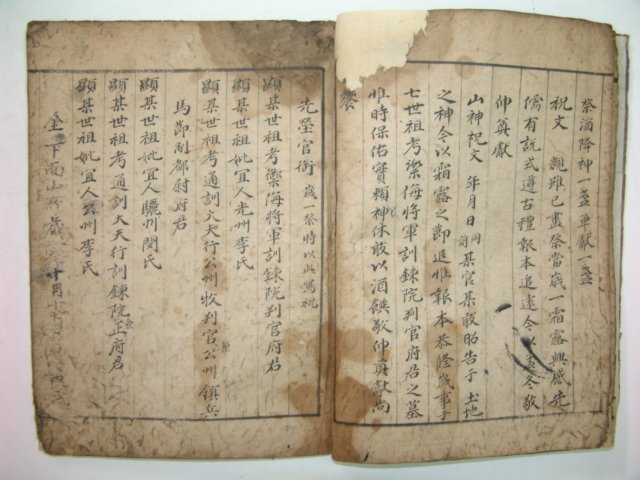 祭酒降神一盞单獻一盞
祝文 親雖已盡祭當歲一霜露興感先
儒有説式遵古禮報本追遠今以孟冬敬
伸奠獻
山神祝文 年月日同前某官某敢昭告于 土地
之神今以霜露之節追惟報本恭修歲事于
七世祖考禦侮將軍訓鍊院判官府君之墓
惟時保佑實賴神休敢以酒饌敬伸奠獻尚
饗
先塋官銜 歲一祭時以此寫祝
顯某世祖考禦侮將軍訓鍊院判官府君
顯某世祖妣宜人光州李氏
顯某世祖考通訓大夫行公州牧判官公州鎮兵
馬節制都尉府君
顯某世祖妣宜人驪州閔氏
顯某世祖考通訓大夫行訓鍊院正府君
顯某世祖妣宜人公州李氏
下面山 歲 十月